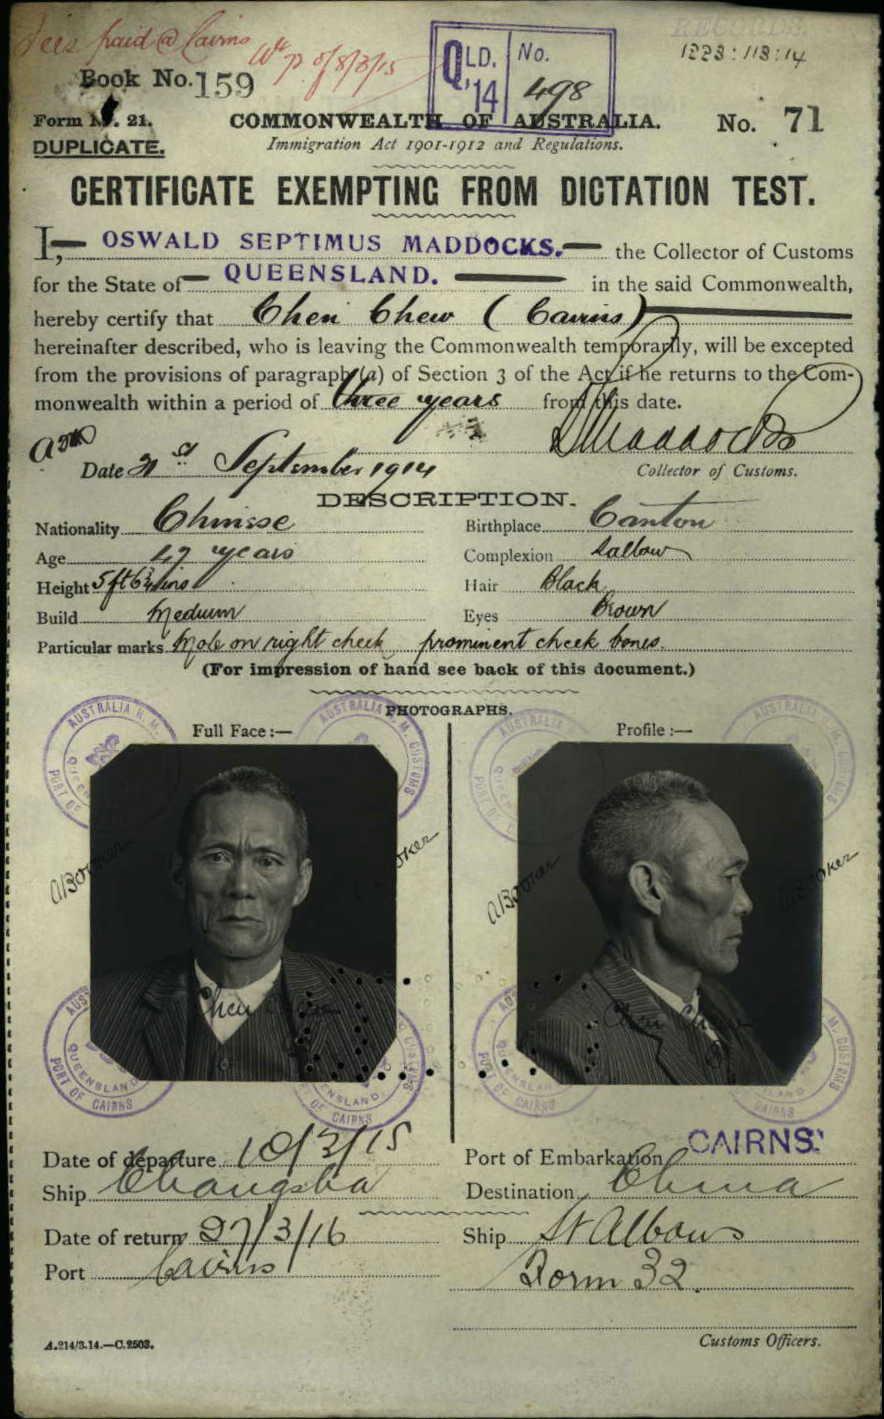 Fees paid @ Cairns
8/3/15
RECORDS.
1223:113:14
Book No. 159
QLD. 14 No. 498
Form No. 21.
COMMONWEALTH OF AUSTRALIA.
No. 71
DUPLICATE.
Immigration Act 1901-1912 and Regulations.
CERTIFICATE EXEMPTING FROM DICTATION TEST.
I, OSWALD SEPTIMUS MADDOCKS. the Collector of Customs
for the State of QUEENSLAND. in the said Commonwealth,
hereby certify that Chen Chew (Cairns)
hereinafter described, who is leaving the Commonwealth temporarily, will be excepted
from the provisions of paragraph (a) of Section 3 of the Act if he returns to the Com-
monwealth within a period of three years from this date.
OSMaddocks
Date 21st September 1914
Collector of Customs.
DESCRIPTION.
Nationality Chinese
Birthplace Canton
Age 49 years
Complexion Sallow
Height 5ft 6¾ins
Hair Black
Build Medium
Eyes Brown
Particular marks Mole on right cheek prominent cheek bones.
(For impression of hand see back of this document.)
PHOTOGRAPHS.
Full Face:—
Profile:—
AUSTRALIA H. M. CUSTOMS
QUEENSLAND
PORT OF CAIRNS
A Booker
A Booker
Chen Chew
Chen Chew
Date of departure 10/3/15
Port of Embarkation CAIRNS
Ship Changsha
Destination China
Date of return 27/3/16
Ship St Albans
Port Cairns
Form 32.
Customs Officers.
A.214/3.14.—C.2503.